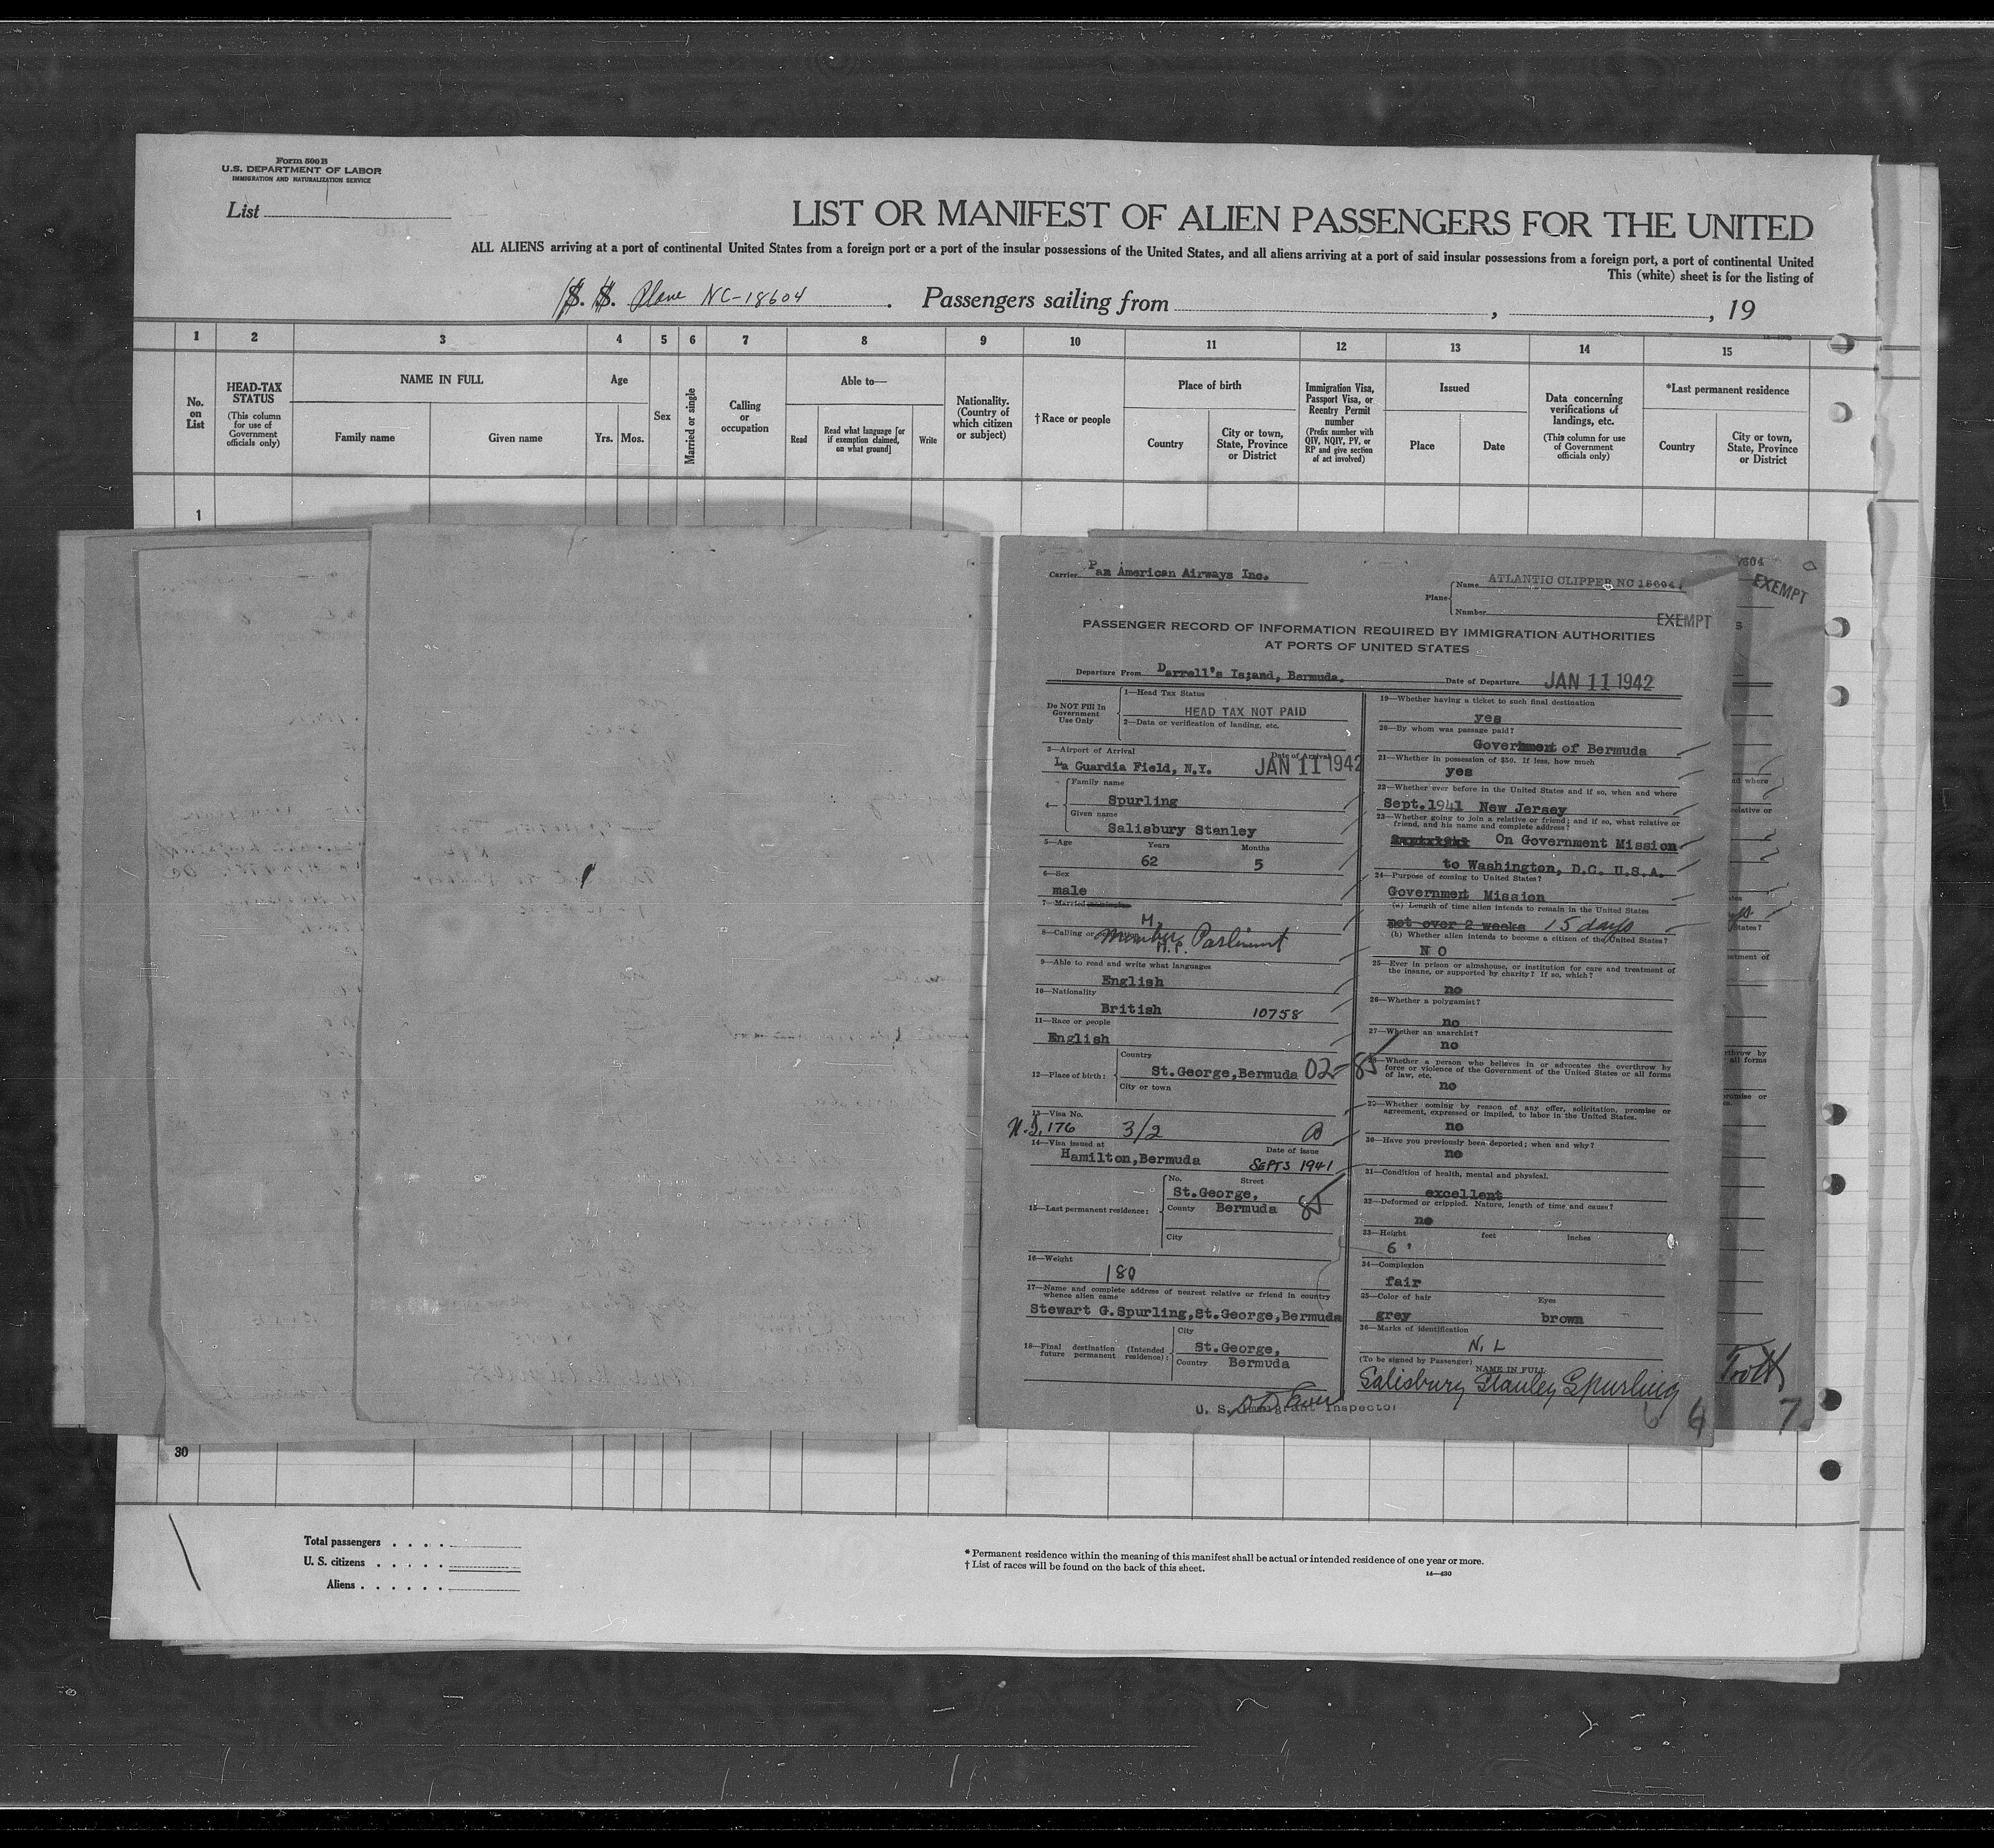 Form 500 B
U.S. DEPARTMENT OF LABOR
IMMIGRATION AND NATURALIZATION SERVICE
List
LIST OR MANIFEST OF ALIEN PASSENGERS FOR THE UNITED
ALL ALIENS arriving at a port of continental United States from a foreign port or a port of the insular possessions of the United States, and all aliens arriving at a port of said insular possessions from a foreign port, a port of continental United
This (white) sheet is for the listing of
S. S. Plane NC-18604. Passengers sailing from , , 19
1 2 3 4 5 6 7 8 9 10 11 12 13 14 15
No. on List
HEAD-TAX STATUS
(This column for use of Government officials only)
NAME IN FULL
Family name Given name
Age
Yrs. Mos.
Sex
Married or single
Calling or occupation
Able to—
Read
Read what language [or if exemption claimed, on what ground]
Write
Nationality. (Country of which citizen or subject)
† Race or people
Place of birth
Country
City or town, State, Province or District
Immigration Visa, Passport Visa, or Reentry Permit number
(Prefix number with QIV, NQIV, PV, or RP and give section of act involved)
Issued
Place Date
Data concerning verifications of landings, etc.
(This column for use of Government officials only)
*Last permanent residence
Country
City or town, State, Province or District
1
Carrier Pan American Airways Inc.
Plane
Name ATLANTIC CLIPPER NC 18604
Number
EXEMPT
PASSENGER RECORD OF INFORMATION REQUIRED BY IMMIGRATION AUTHORITIES
AT PORTS OF UNITED STATES
Departure From Darrell's Is;and, Bermuda.
Date of Departure JAN 11 1942
Do NOT Fill In Government Use Only
1—Head Tax Status
HEAD TAX NOT PAID
2—Data or verification of landing, etc.
3—Airport of Arrival Date of Arrival
La Guardia Field, N.Y. JAN 11 1942
4—
Family name
Spurling
Given name
Salisbury Stanley
5—Age Years Months
62 5
6—Sex
male
7—Married
M.
8—Calling or occupation
Member Parliment
M.P.
9—Able to read and write what languages
English
10—Nationality
British 10758
11—Race or people
English
12—Place of birth:
Country
St.George,Bermuda 02-85
City or town
13—Visa No.
N.I. 176 3/2 B
14—Visa issued at Date of issue
Hamilton,Bermuda SEPT 3 1941
15—Last permanent residence:
No. Street
St.George,
County Bermuda 85
City
16—Weight
180
17—Name and complete address of nearest relative or friend in country whence alien came
Stewart G.Spurling,St.George,Bermuda
18—Final destination (Intended future permanent residence):
City
St.George,
Country Bermuda
U. S. Immigrant Inspector
19—Whether having a ticket to such final destination
yes
20—By whom was passage paid?
Government of Bermuda
21—Whether in possession of $50. If less, how much
yes
22—Whether ever before in the United States and if so, when and where
Sept.1941 New Jersey
23—Whether going to join a relative or friend; and if so, what relative or friend, and his name and complete address?
On Government Mission
to Washington, D.C. U.S.A.
24—Purpose of coming to United States?
Government Mission
(a) Length of time alien intends to remain in the United States
not over 2 weeks 15 days
(b) Whether alien intends to become a citizen of the United States?
N O
25—Ever in prison or almshouse, or institution for care and treatment of the insane, or supported by charity? If so, which?
no
26—Whether a polygamist?
no
27—Whether an anarchist?
no
28—Whether a person who believes in or advocates the overthrow by force or violence of the Government of the United States or all forms of law, etc.
no
29—Whether coming by reason of any offer, solicitation, promise or agreement, expressed or implied, to labor in the United States.
no
30—Have you previously been deported; when and why?
no
31—Condition of health, mental and physical.
excellent
32—Deformed or crippled. Nature, length of time and cause?
no
33—Height feet inches
6 '
34—Complexion
fair
35—Color of hair Eyes
grey brown
36—Marks of identification
N. L
(To be signed by Passenger) NAME IN FULL
Salisbury Stanley Spurling
6
EXEMPT
Trott
7
30
Total passengers
U. S. citizens
Aliens
* Permanent residence within the meaning of this manifest shall be actual or intended residence of one year or more.
† List of races will be found on the back of this sheet.
14—430